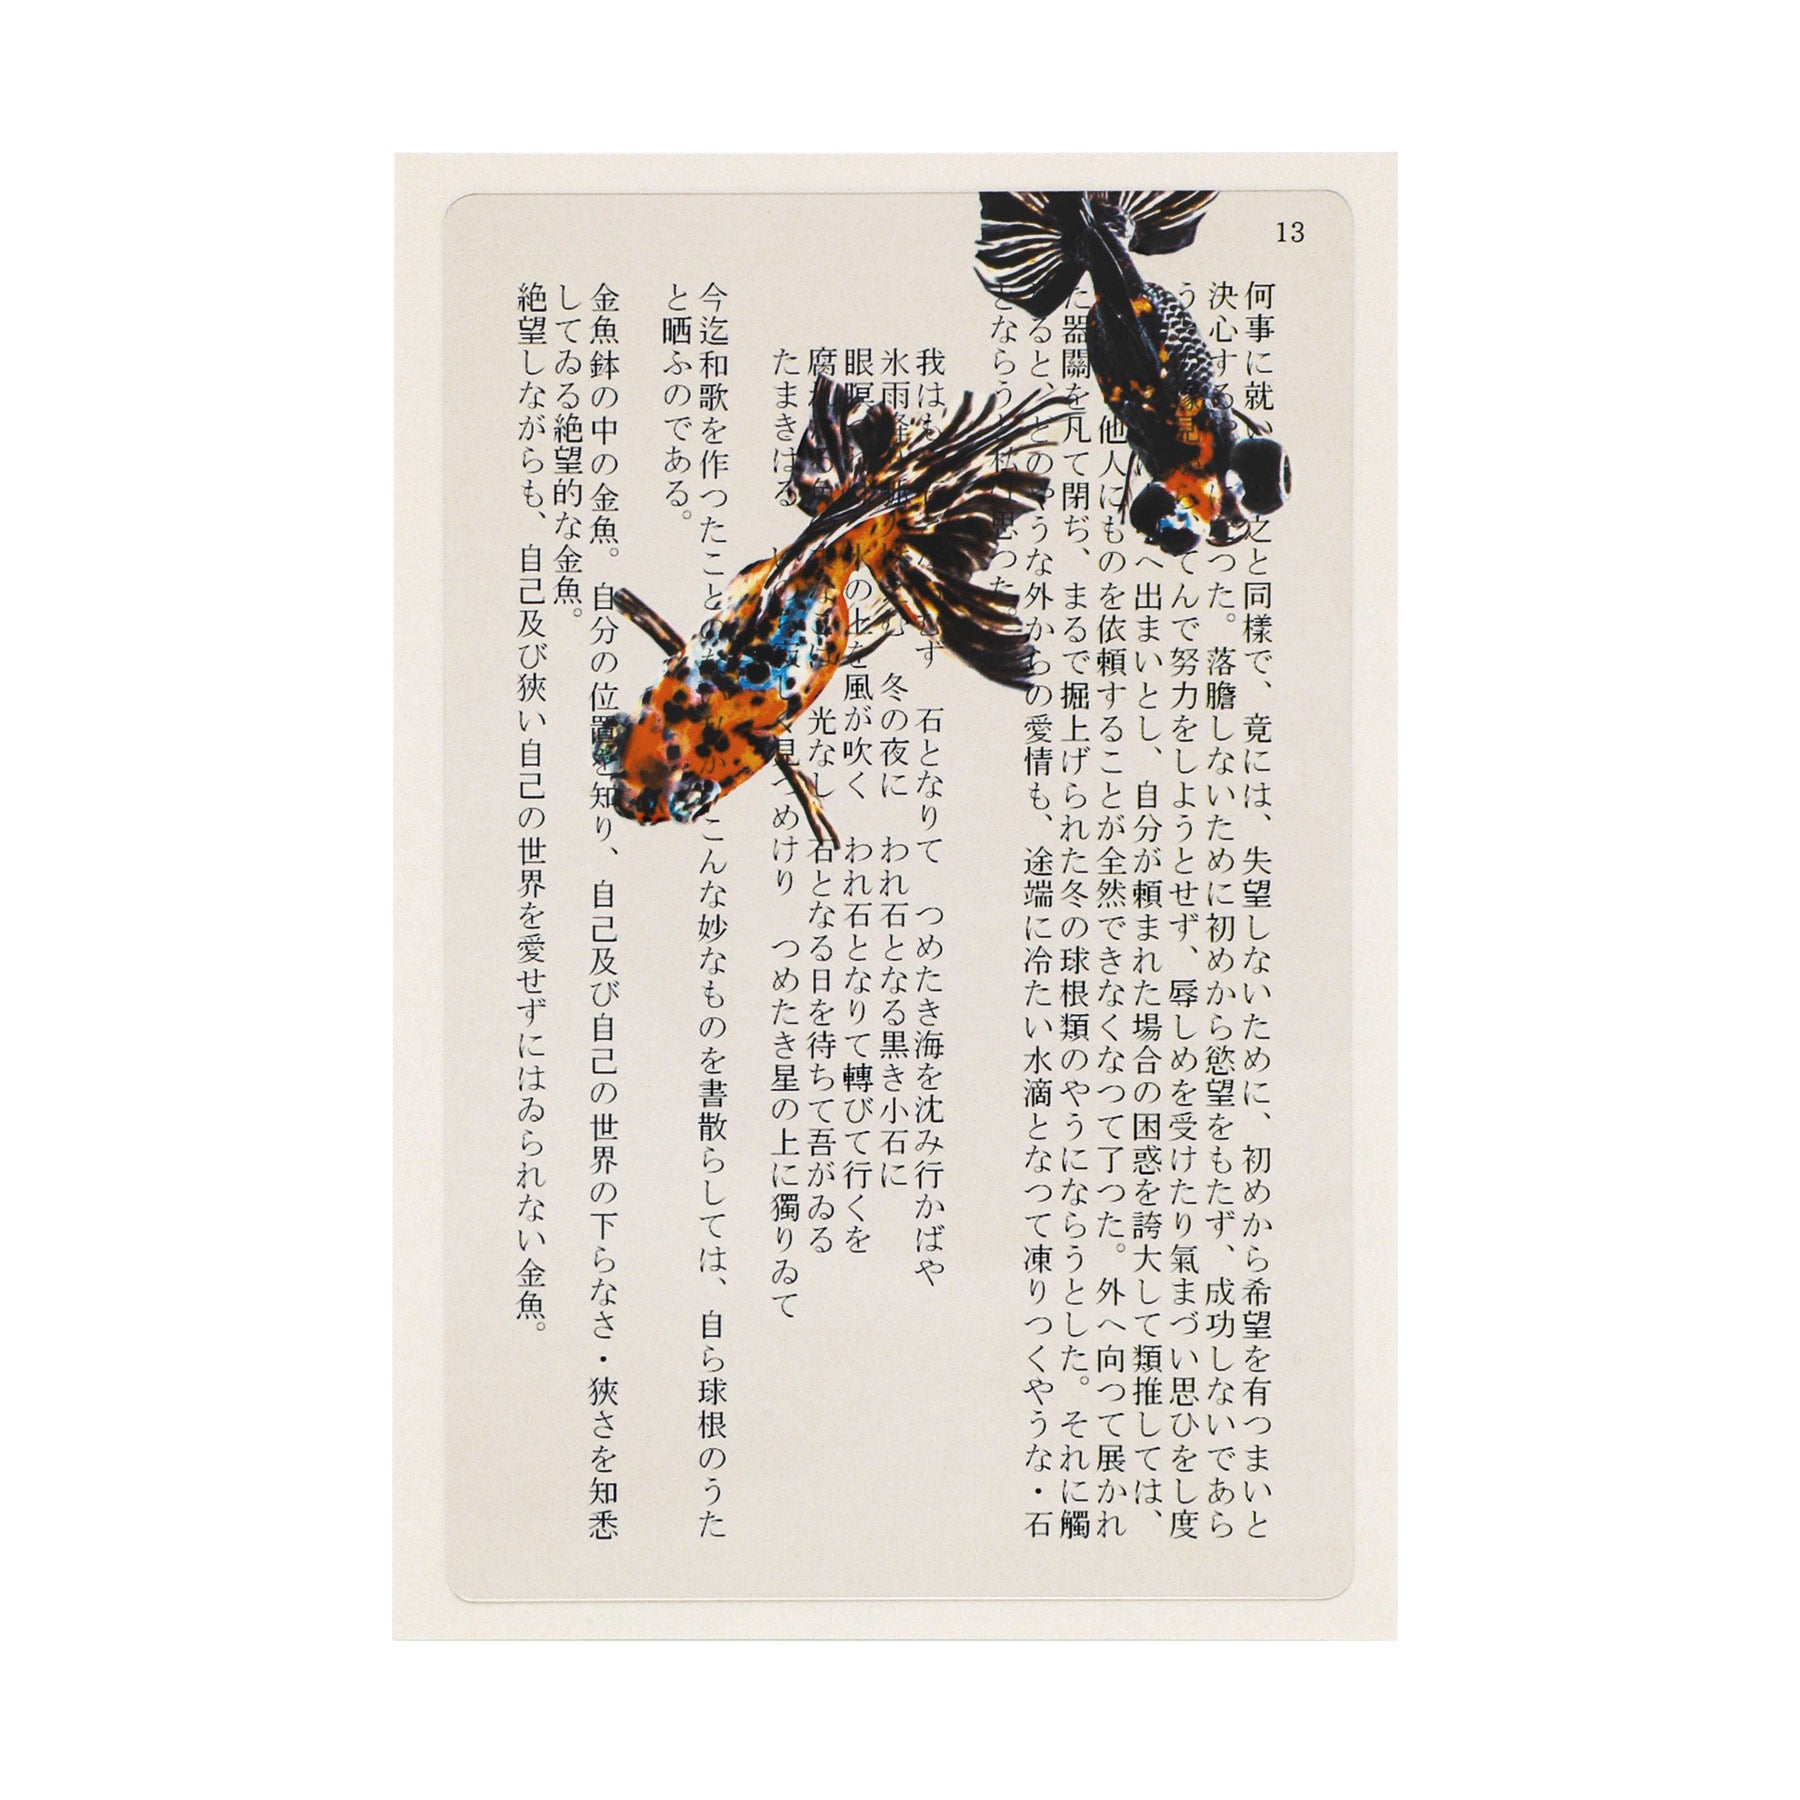 13
何事に就い 之と同樣で、竟には、失望しないために、初めから希望を有つまいと
決心する つた。落膽しないために初めから慾望をもたず、成功しないであら
う てんで努力をしようとせず、辱しめを受けたり氣まづい思ひをし度
へ出まいとし、自分が頼まれた場合の困惑を誇大して類推しては、
他人にものを依頼することが全然できなくなつて了つた。外へ向つて展かれ
た器關を凡て閉ぢ、まるで掘上げられた冬の球根類のやうにならうとした。それに觸
ると、どのやうな外からの愛情も、途端に冷たい水滴となつて凍りつくやうな・石
とならう 私 思つた。
我はも むす 石となりて つめたき海を沈み行かばや
氷雨降 冬の夜に われ石となる黒き小石に
眼瞑 氷の上を風が吹く われ石となりて轉びて行くを
腐れ 光なし 石となる日を待ちて吾がゐる
たまきはる しく見つめけり つめたき星の上に獨りゐて
今迄和歌を作つたことの 私が こんな妙なものを書散らしては、自ら球根のうた
と晒ふのである。
金魚鉢の中の金魚。自分の位置を知り、自己及び自己の世界の下らなさ・狹さを知悉
してゐる絶望的な金魚。
絶望しながらも、自己及び狹い自己の世界を愛せずにはゐられない金魚。